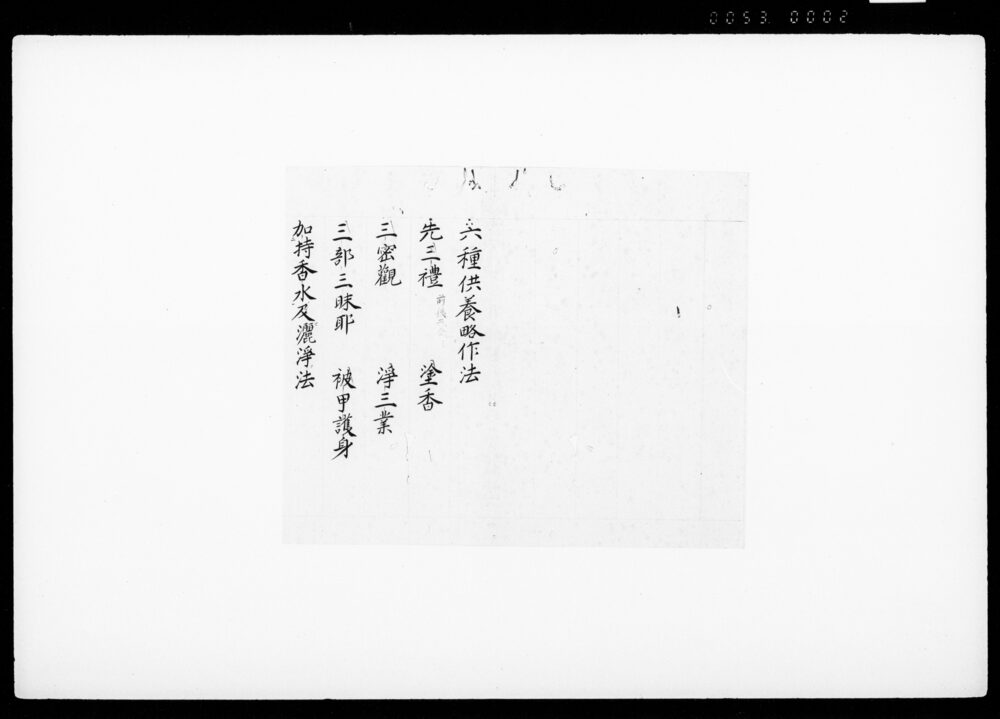 0053 0002
六種供養略作法
先三禮 塗香
三密觀 淨三業
三部三昧耶 被甲護身
加持香水及灑淨法